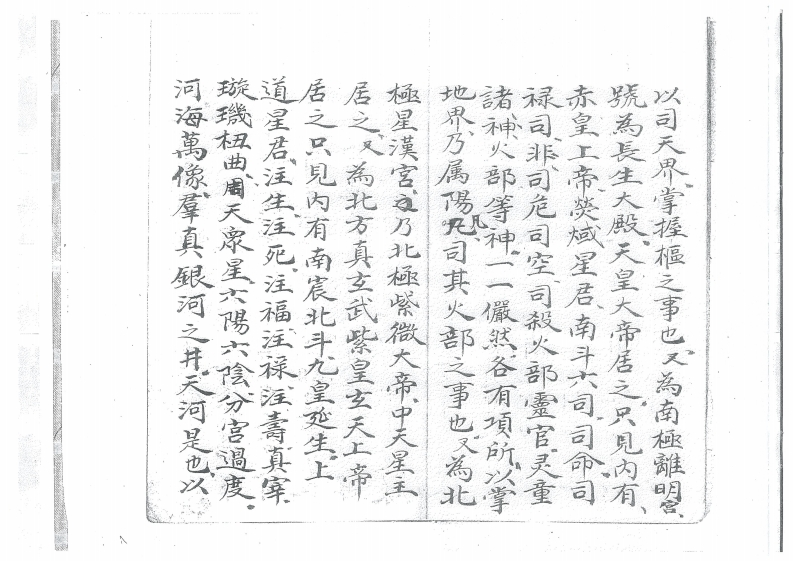 以司天界、掌握樞之事也、又為南極離明宮、
號為長生大殿、天皇大帝居之、只見內有、
赤皇上帝、熒惑星君、南斗六司、司命、司
祿、司非、司危、司空、司殺、火部靈官、灵童
諸神、火部等神、一一儼然、各有項所、以掌
地界、乃属陽、凡司其火部之事也、又為北
極星漢宮、乃北極紫微大帝、中天星主
居之、又為北方真玄武紫皇玄天上帝
居之、只見內有南宸北斗九皇延生、上
道星君、注生、注死、注福、注祿、注壽、真宰
璇璣杻曲、周天眾星、六陽六陰、分宮過度。
河海萬像、羣真銀河之井、天河是也、以